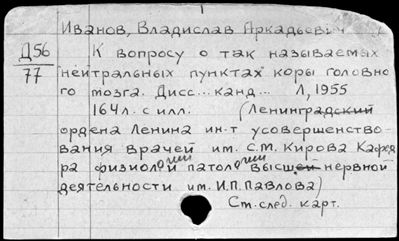 Иванов, Владислав Аркадьевич
Д56
77
К вопросу о так называемых
нейтральных пунктах коры головно
го мозга. Дисс... канд... Л, 1955
164л. с илл. (Ленинградский
ордена Ленина ин-т усовершенство-
вания врачей им. С.М. Кирова Кафед
ра физиологии патологии высшей нервной
деятельности им. И.П. Павлова)
Ст. след. карт.